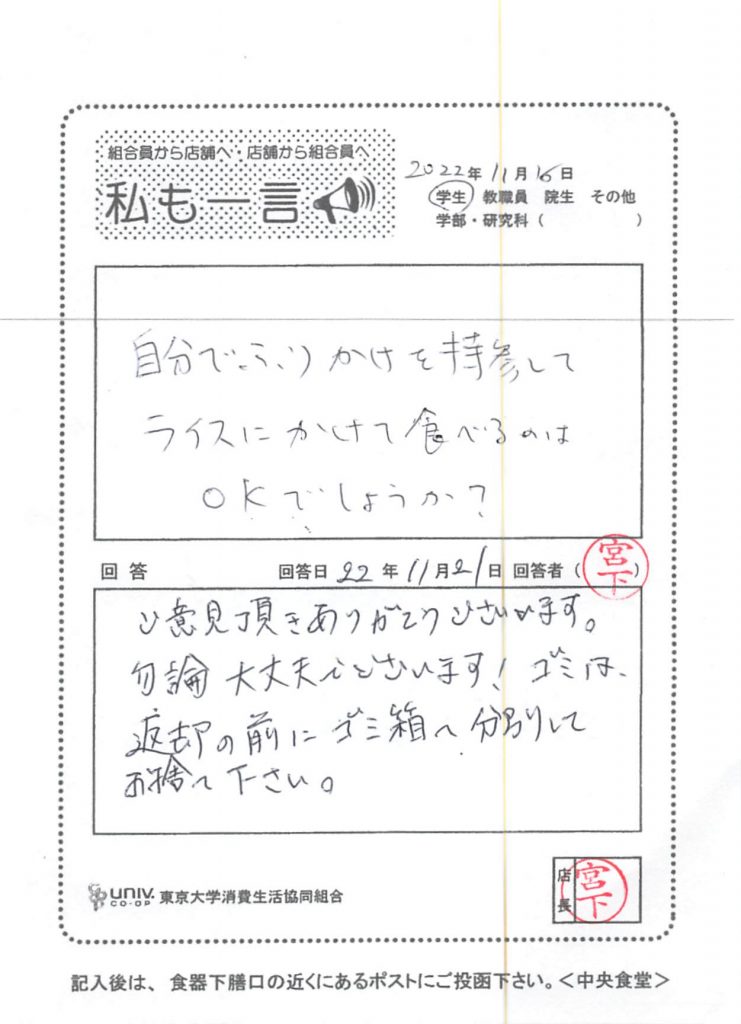 組合員から店舗へ・店舗から組合員へ
私も一言
2022年11月16日
学生 教職員 院生 その他
学部・研究科( )
自分でふりかけを持参して
ライスにかけて食べるのは
OKでしょうか?
回答 回答日 22年11月21日 回答者(宮下)
ご意見頂きありがとうございます。
勿論大丈夫でございます!ゴミは、
返却の前にゴミ箱へ分別して
お捨て下さい。
UNIV. CO-OP 東京大学消費生活協同組合
店長 宮下
記入後は、食器下膳口の近くにあるポストにご投函下さい。<中央食堂>